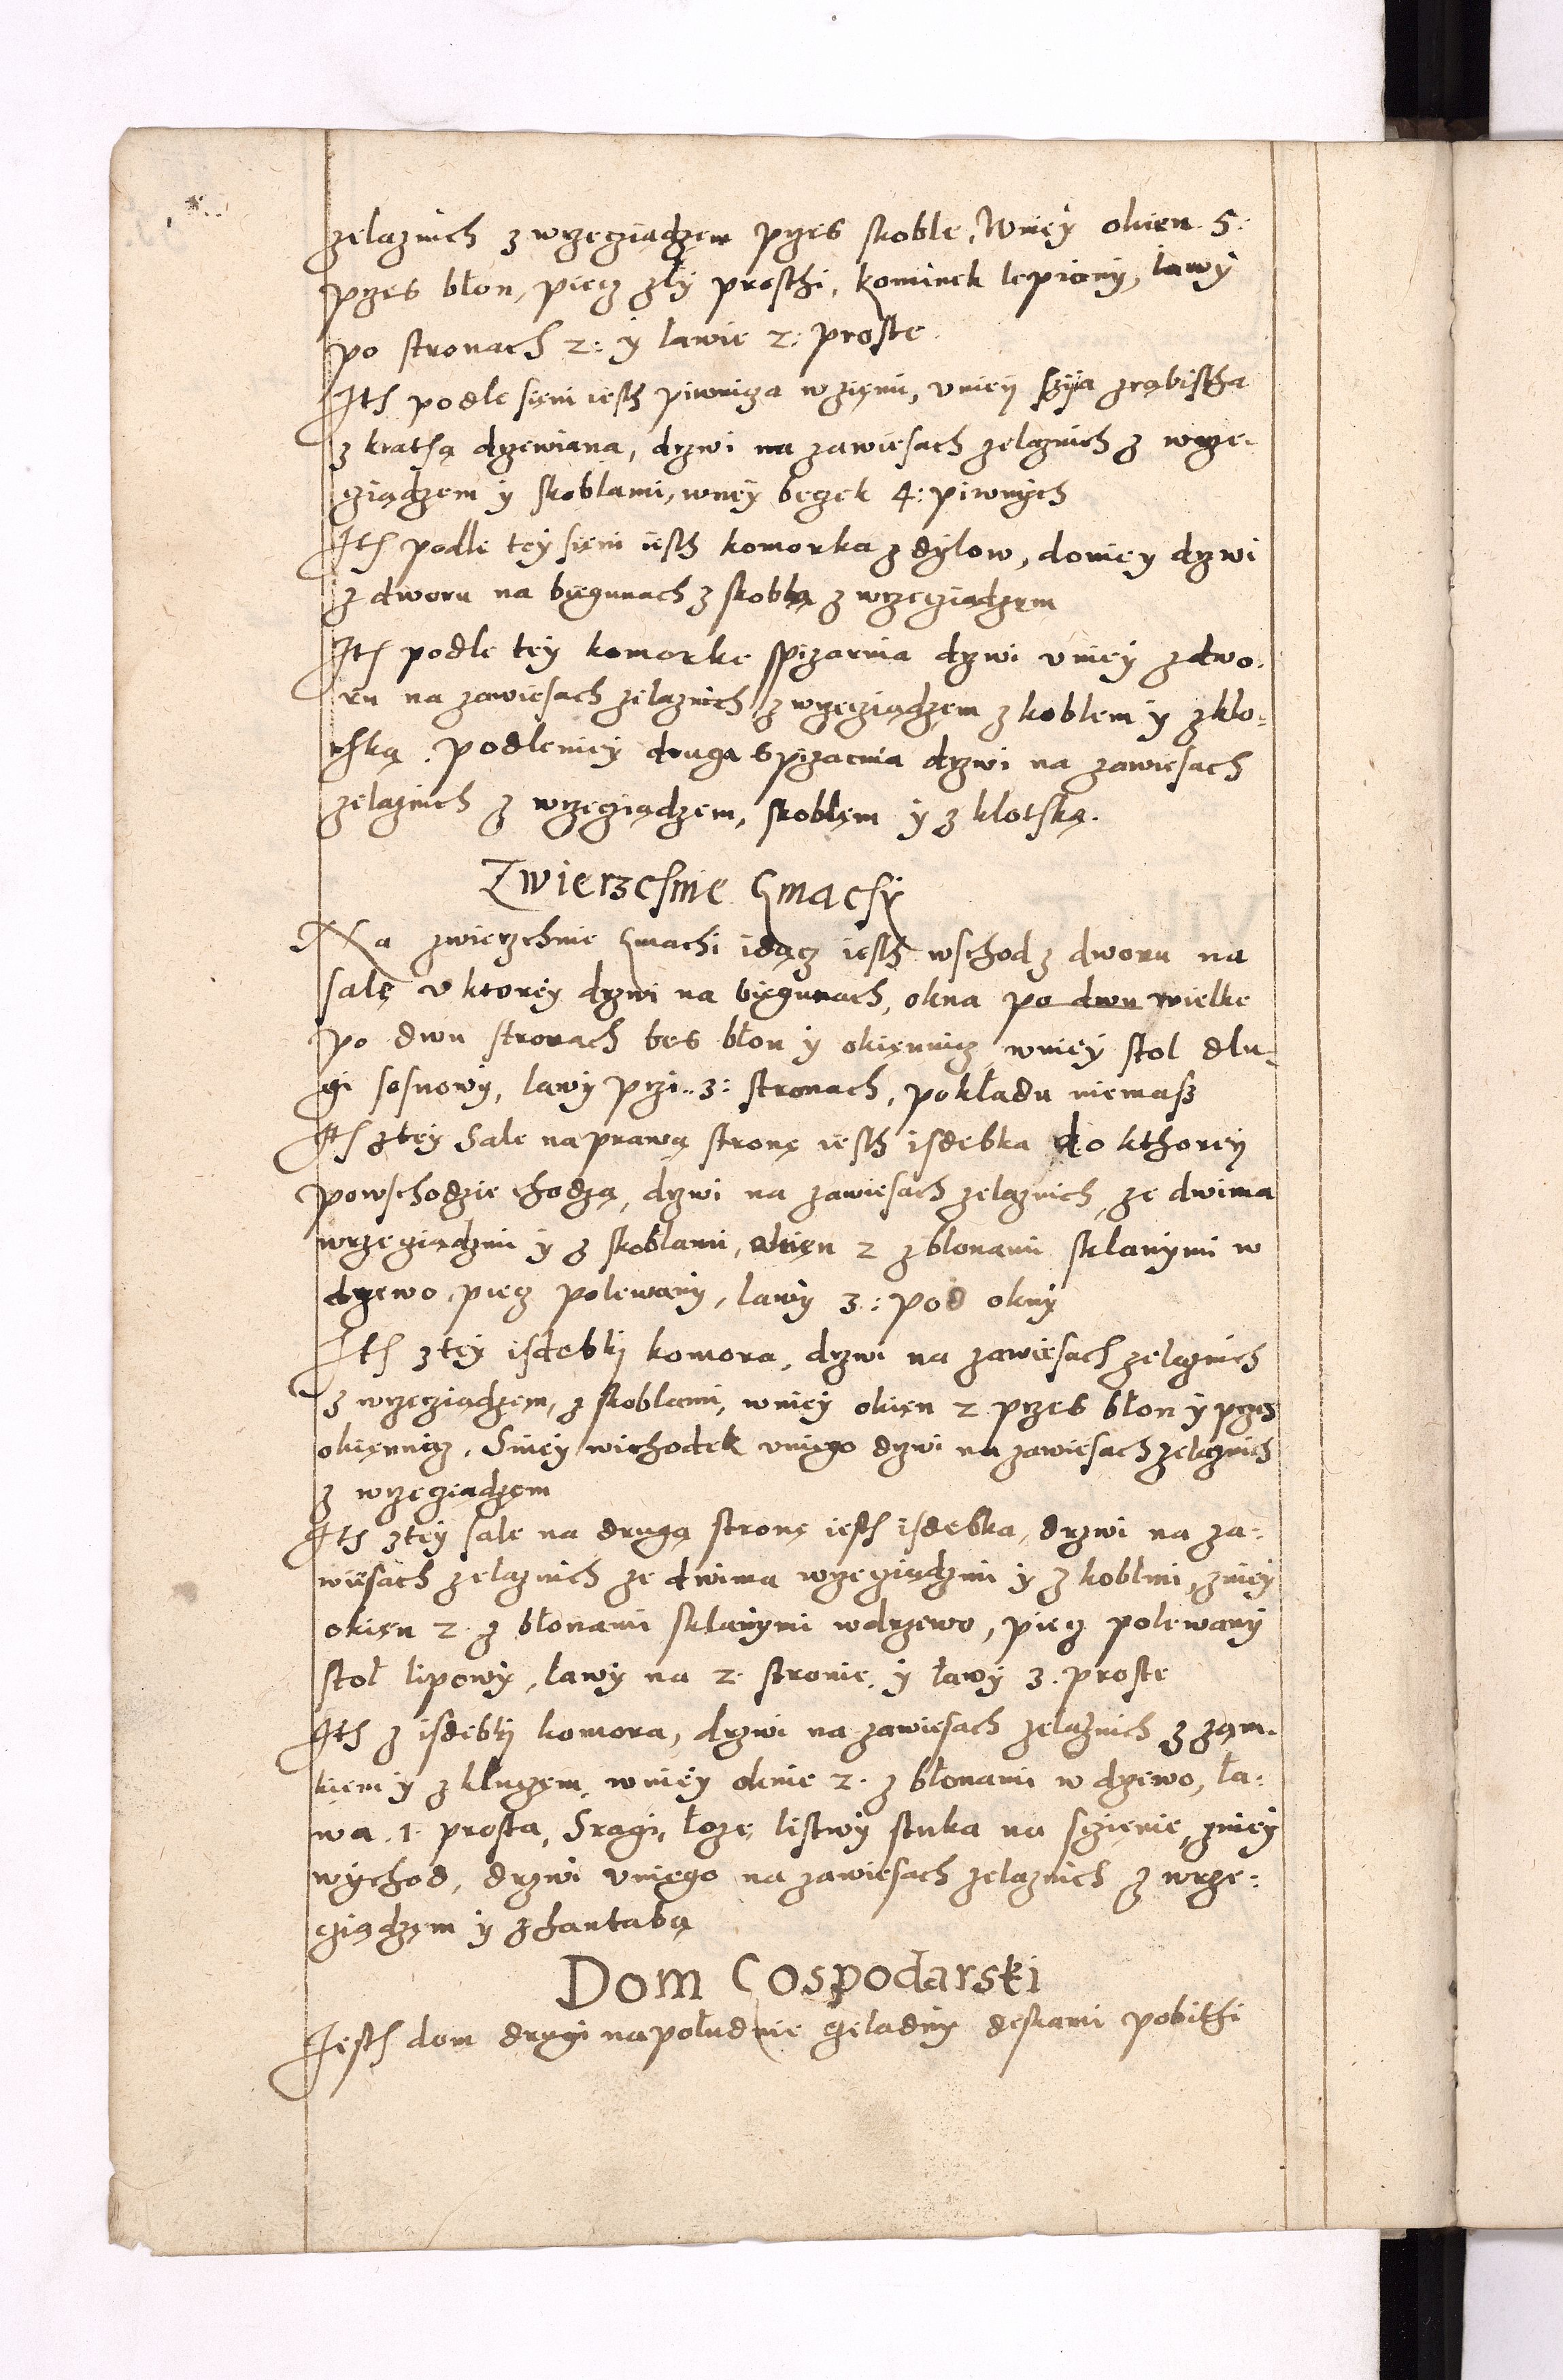 zelaznich z wrzecziądzem przes skoble, Wniey okien 5:
przes błon, piecz zły prosthi, kominek lepiony, ławy
po stronach 2: y ławie 2: proste
Ith podle sięni iesth piwnicza wziemi, vniey szyia zrąbistha
z krathą drzewianą, drzwi na zawiesach zelaznich z wrze-
cziądzem y skoblami, wney beczek 4: piwnych
Ith podle tey sieni iesth komorka z dylow, doniey drzwi
z dworu na biegunach z skoblą z wrzecziądzem
Ith podle tey komorke spizarnia drzwi vniey zdwo-
ru na zawiesach zelaznich z wrzecziądzem z koblem y z klo-
thką. Podleniey druga spizarnia drzwi na zawiesach
zelaznich z wrzecziądzem, skoblęm y z klotską.
Zwierzchnie Gmachy
Na zwierzchnie Gmachi idącz iesth wschod z dworu na
salę v ktorey drzwi na biegunach, okna po dwu wielke
po dwu stronach bes błon y okiennicz wniey stol dlu-
gi sosnowy, lawy przi 3: stronach, pokładu niemasz
Ith ztey Sale naprawą stronę iesth isdebka do kthorey
powschodzie chodzą, drzwi na zawiesach zelaznich ze dwiema
wrzecziądzmi y z skoblami, okien 2 z blonami sklanymi w
drzewo, piecz polewany, lawy 3: pod okny
Ith ztey isdebki komora, drzwi na zawiesach zelaznich
z wrzecziądzem, z skoblami, wniey okien 2 przes błon y przes
okiennicz. Sniey wichodek vniego drzwi na zawiesach zelaznich
z wrzecziądzem
Ith ztey sale na drugą stronę iesth isdebka, drzwi na za-
wiesach zelaznich ze dwima wrzecziądzmi y z koblmi, zniey
okien 2 z błonami sklanymi wdrzewo, piecz polewany
stoł lipowy, ławy na 2 stronie, y ławy 3. proste
Ith z isdebki komora, drzwi na zawiesach zelaznich z zam-
kiem y z kluczem, wniey oknie 2. z błonami w drzewo, ła-
wa 1. prosta, Sragi, łoze listwy stuka na scienie, zniey
wychod, drzwi vniego na zawiesach zelaznich z wrze-
cziądzem y z hantabą
Dom Gospodarski
Iesth dom drugi napołudnie czeladny deskami pobithi